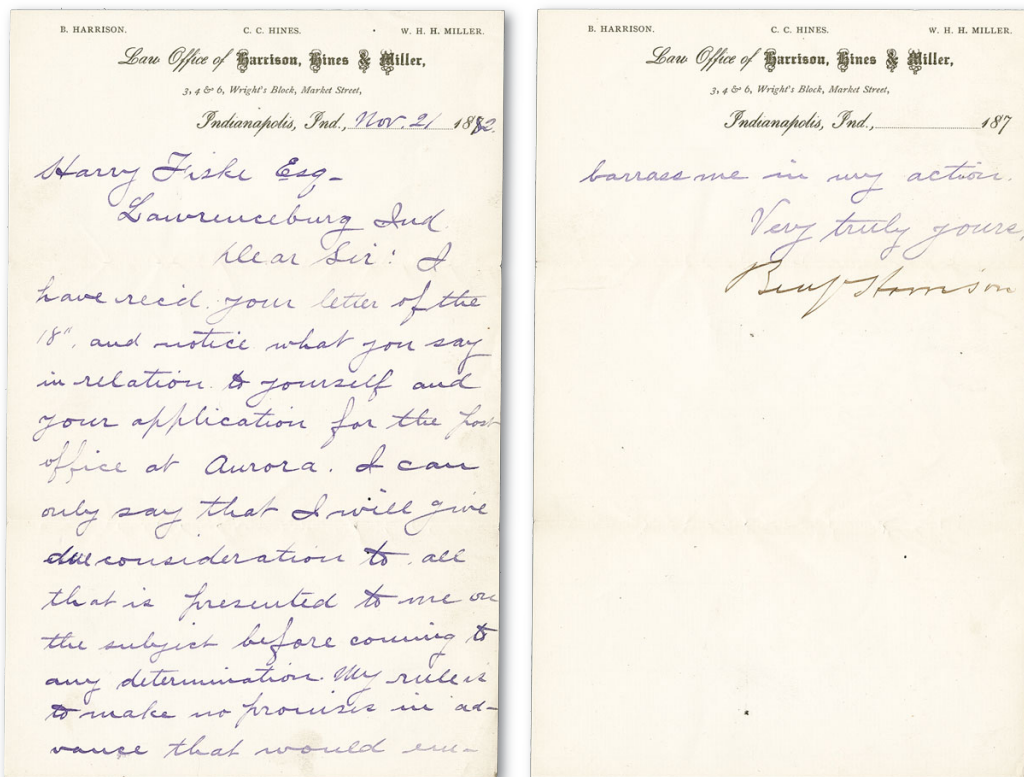 B. HARRISON. C. C. HINES. W. H. H. MILLER.
Law Office of Harrison, Hines & Miller,
3, 4 & 6, Wright's Block, Market Street,
Indianapolis, Ind., Nov. 21 1882.
Harry Fiske Esq-
Lawrenceburg Ind.
Dear Sir: I
have rec'd. your letter of the
18". and notice what you say
in relation to yourself and
your application for the post
office at Aurora. I can
only say that I will give
due consideration to all
that is presented to me on
the subject before coming to
any determination. My rule is
to make no promises in ad-
vance that would em-
B. HARRISON. C. C. HINES. W. H. H. MILLER.
Law Office of Harrison, Hines & Miller,
3, 4 & 6, Wright's Block, Market Street,
Indianapolis, Ind., 187
barrass me in my action.
Very truly yours,
Benj Harrison